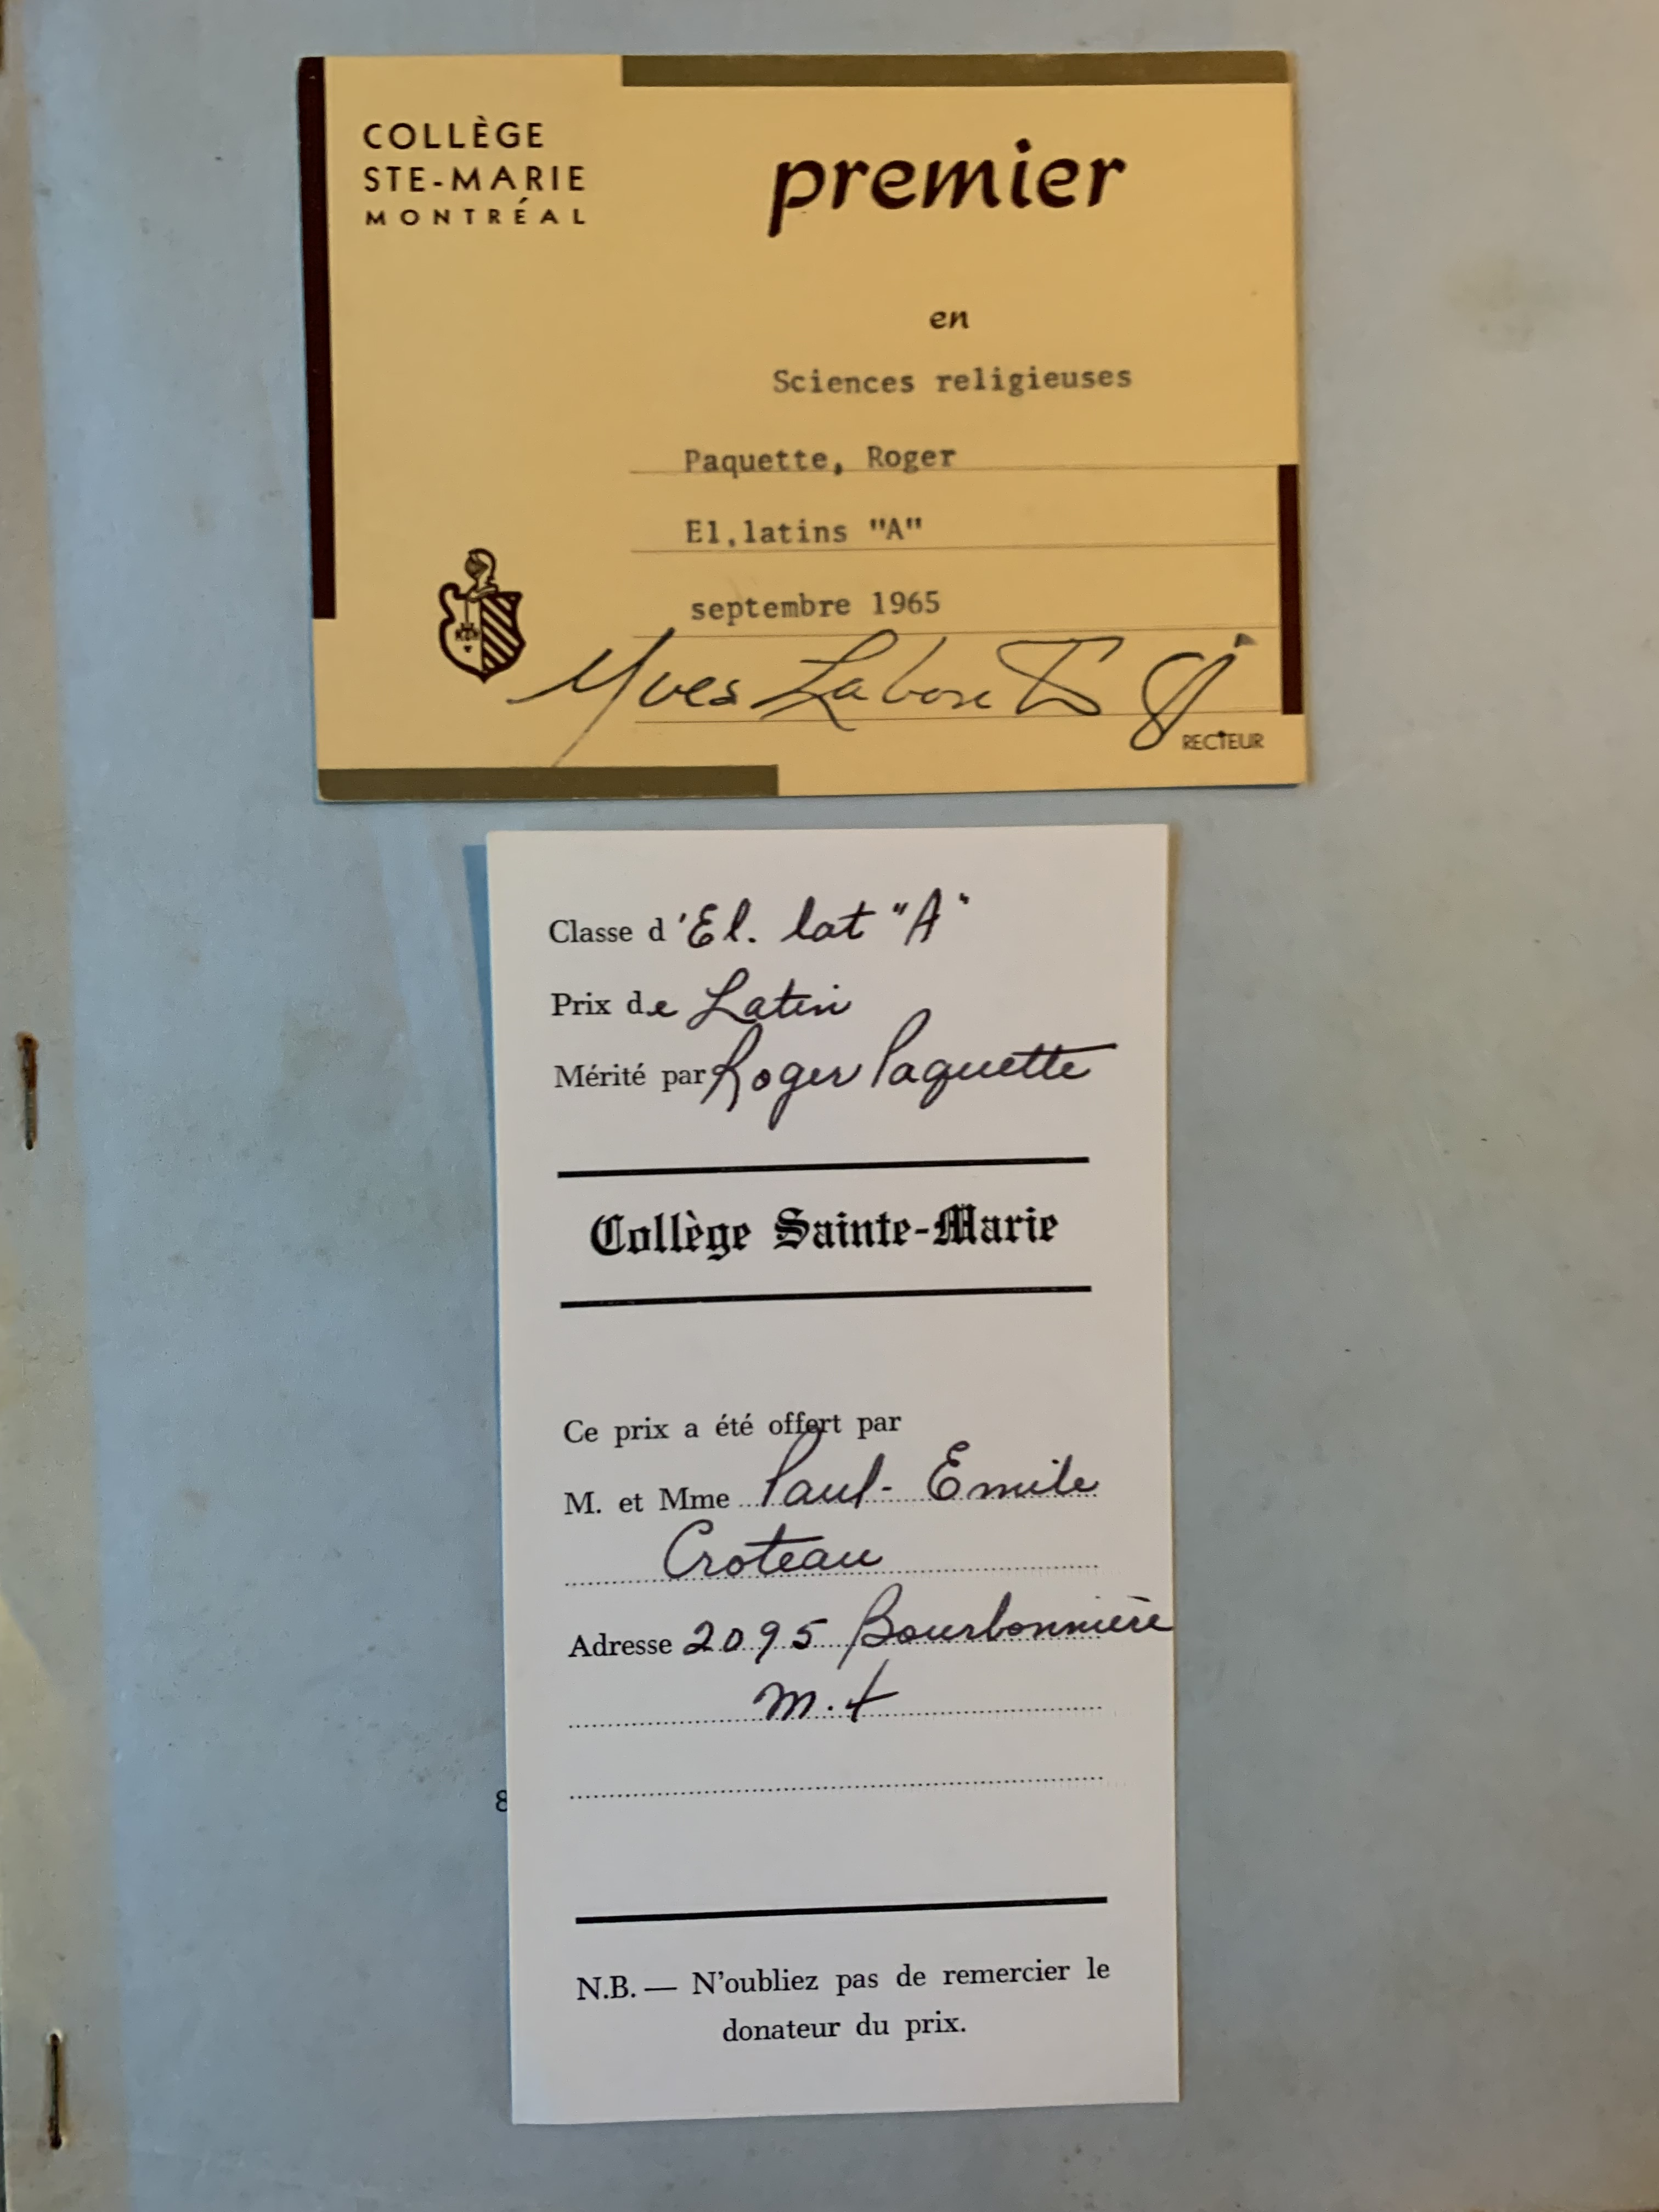 COLLÈGE
STE-MARIE
MONTRÉAL
premier
en
Sciences religieuses
Paquette, Roger
El.latins "A"
septembre 1965
Yves
RECTEUR
Classe d'El. lat "A"
Prix de Latin
Mérité par Roger Paquette
Collège Sainte-Marie
Ce prix a été offert par
M. et Mme Paul-Emile
Croteau
Adresse 2095 Bourbonnière
M.t
8
N.B. — N'oubliez pas de remercier le
donateur du prix.